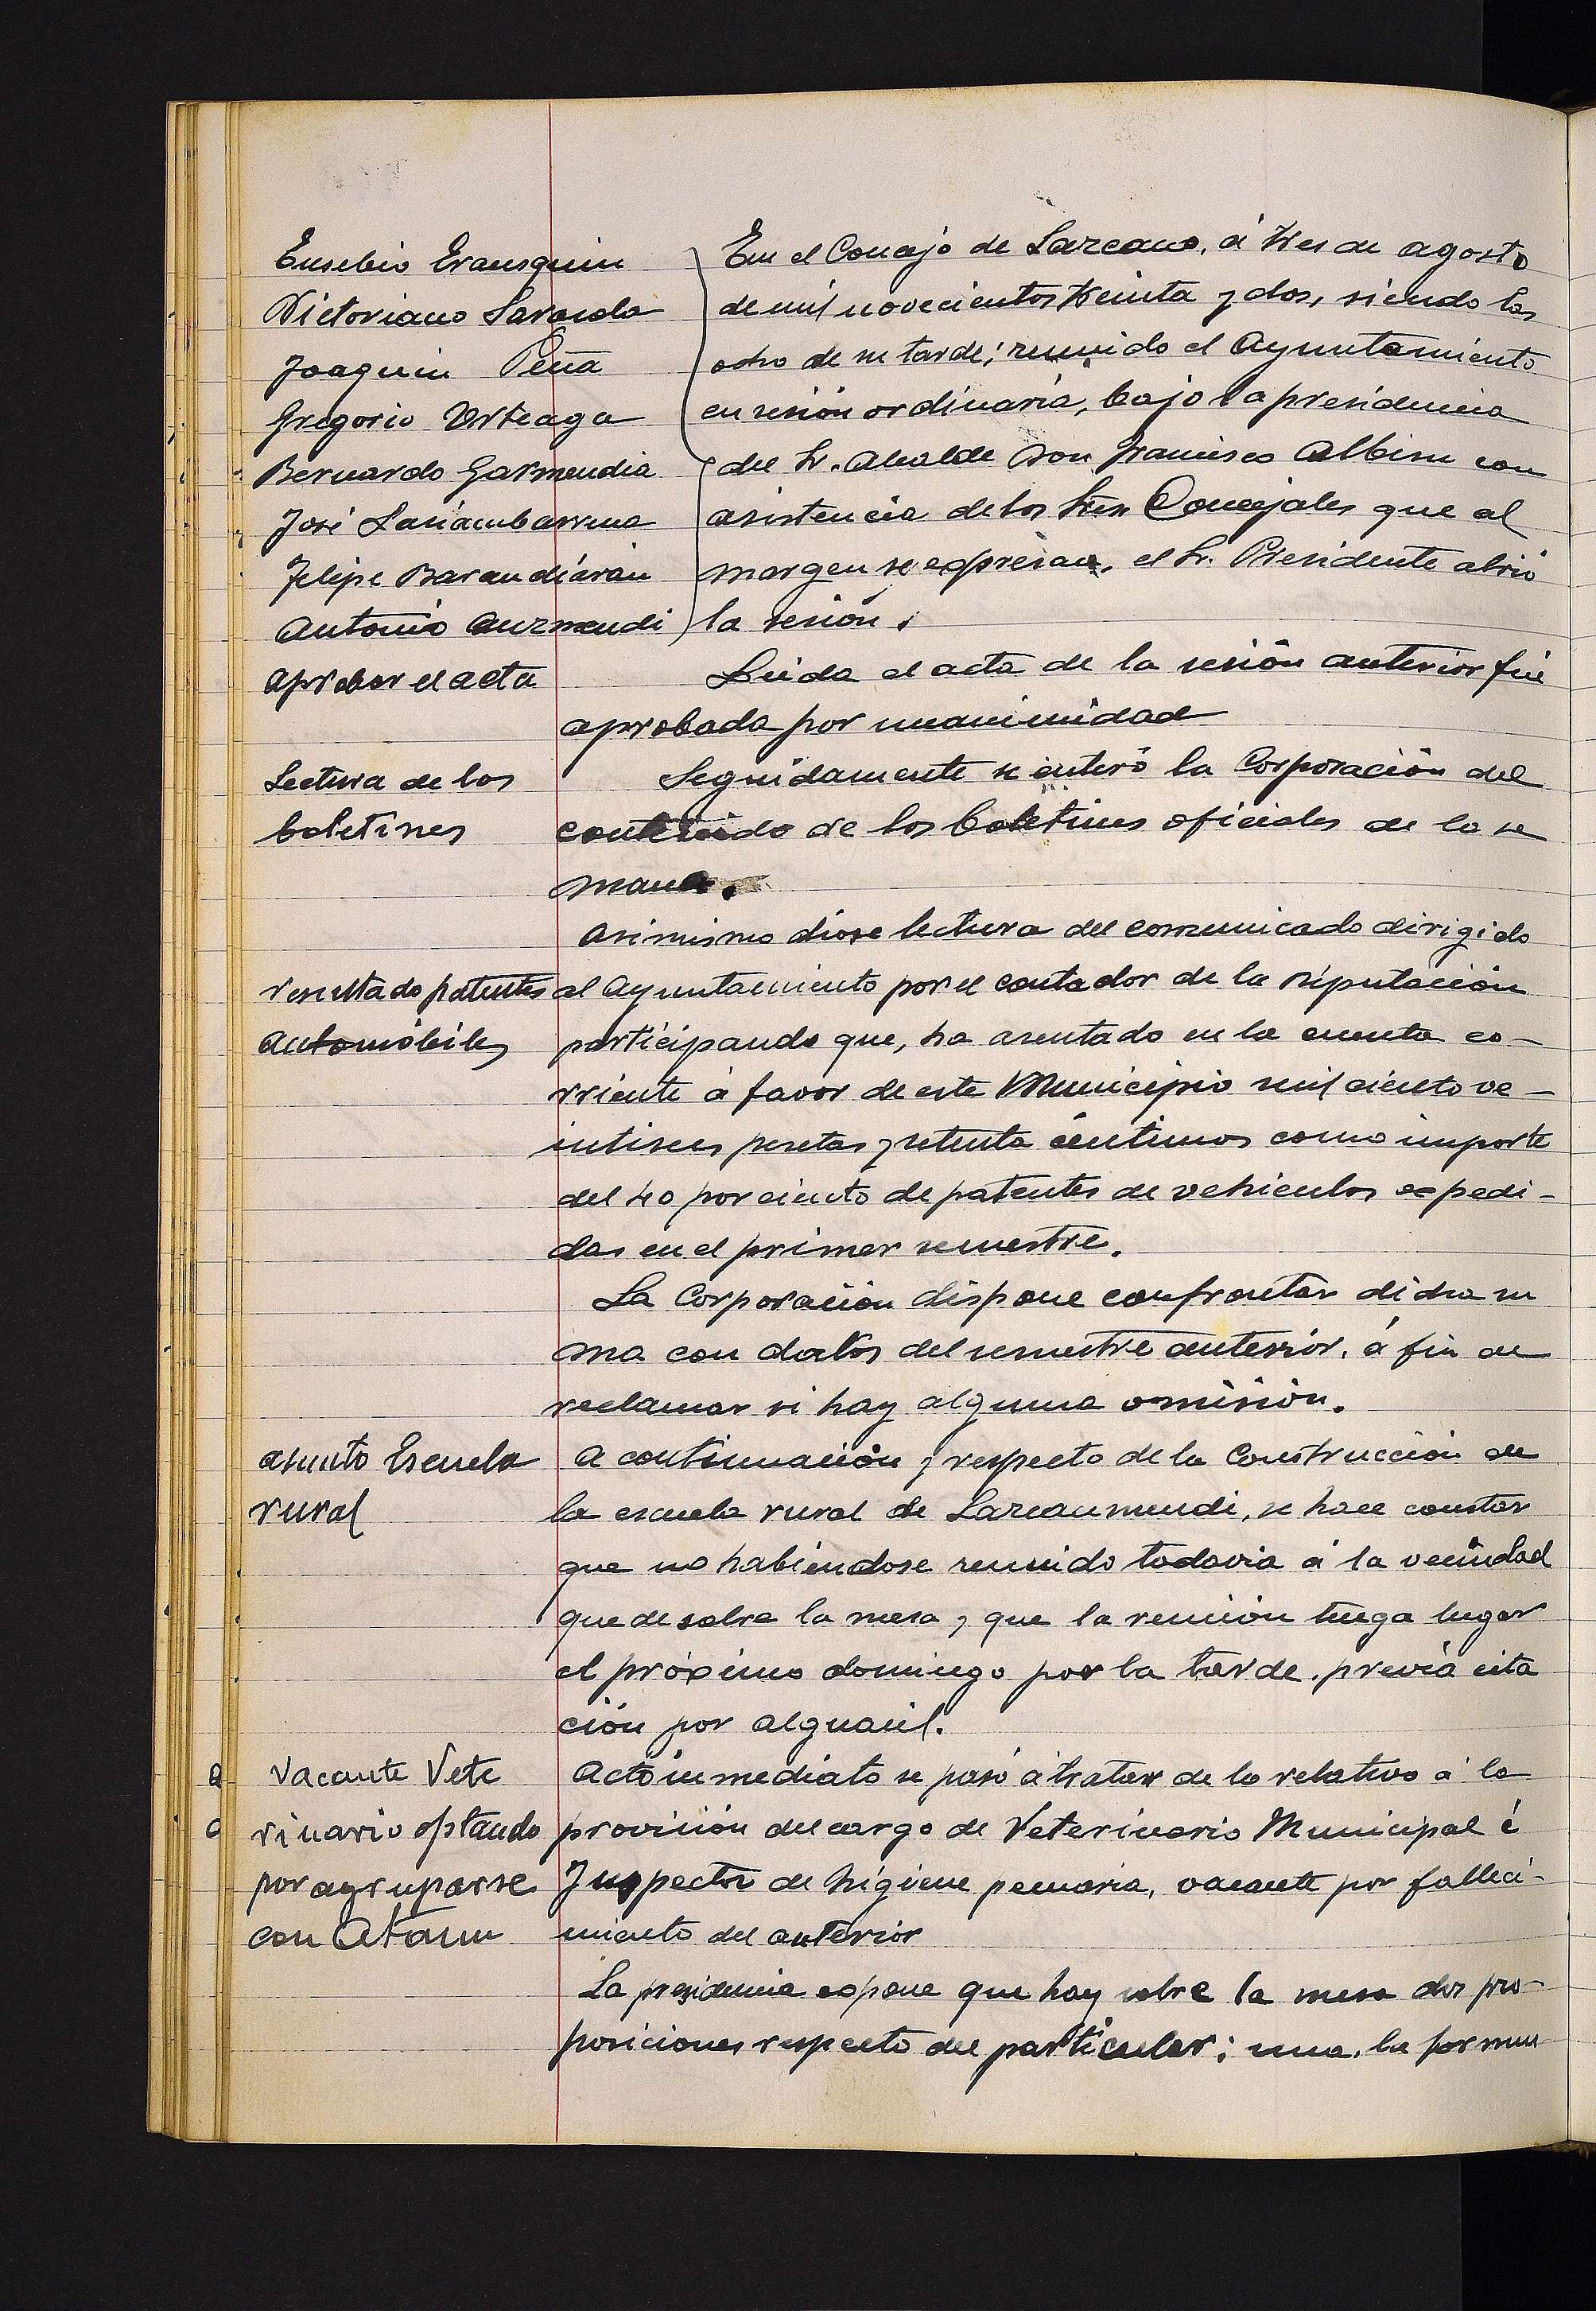 Eusebio Erausquin
Victoriano Sarasola
Joaquin Peña
Gregorio Urteaga
Bernardo Garmendia
José Lasiambarrena
Felipe Barandiarán
Antonio Auzmendi
En el Concejo de Lazcano, á tres de agosto
de mil novecientos treinta y dos, siendo las
ocho de su tarde; reunido el Ayuntamiento
en sesión ordinaria, bajo la presidencia
del Sr. Alcalde Don Francisco Albisu con
asistencia de los Sres Concejales que al
margen se expresan, el Sr. Presidente abrió
la sesión.
Aprobar el acta
Leida el acta de la sesión anterior fué
aprobada por unanimidad
Lectura de los
boletines
Seguidamente se enteró la Corporación del
contenido de los boletines oficiales de la se
mana.
Asimismo diose lectura del comunicado dirigido
resultado patentes
automóbiles
al Ayuntamiento por el contador de la Diputación
participando que, ha asentado en la cuenta co-
rriente á favor de este Municipio mil ciento ve-
intiseis pesetas y setenta céntimos como importe
del 40 por ciento de patentes de vehiculos expedi-
das en el primer semestre.
La Corporación dispone confrontar dicha su
ma con datos del semestre anterior, á fin de
reclamar si hay alguna omisión.
asunto Escuela
rural
A continuación y respecto de la Construcción de
la escuela rural de Lazcaumendi, se hace constar
que no habiendose reunido todavia á la vecindad
quede sobre la mesa y que la reunión tenga lugar
el próximo domingo por la tarde, previa cita
ción por alguacil.
Vacante Vete
rinario optando
por agruparse
con Ataun
Acto inmediato se pasó á tratar de lo relativo á la
provisión del cargo de Veterinario Municipal é
Inspector de higiene pecuaria, vacante por falleci-
miento del anterior
La presidencia expone que hay sobre la mesa dos pro-
posiciones respecto del particular; una, la formu